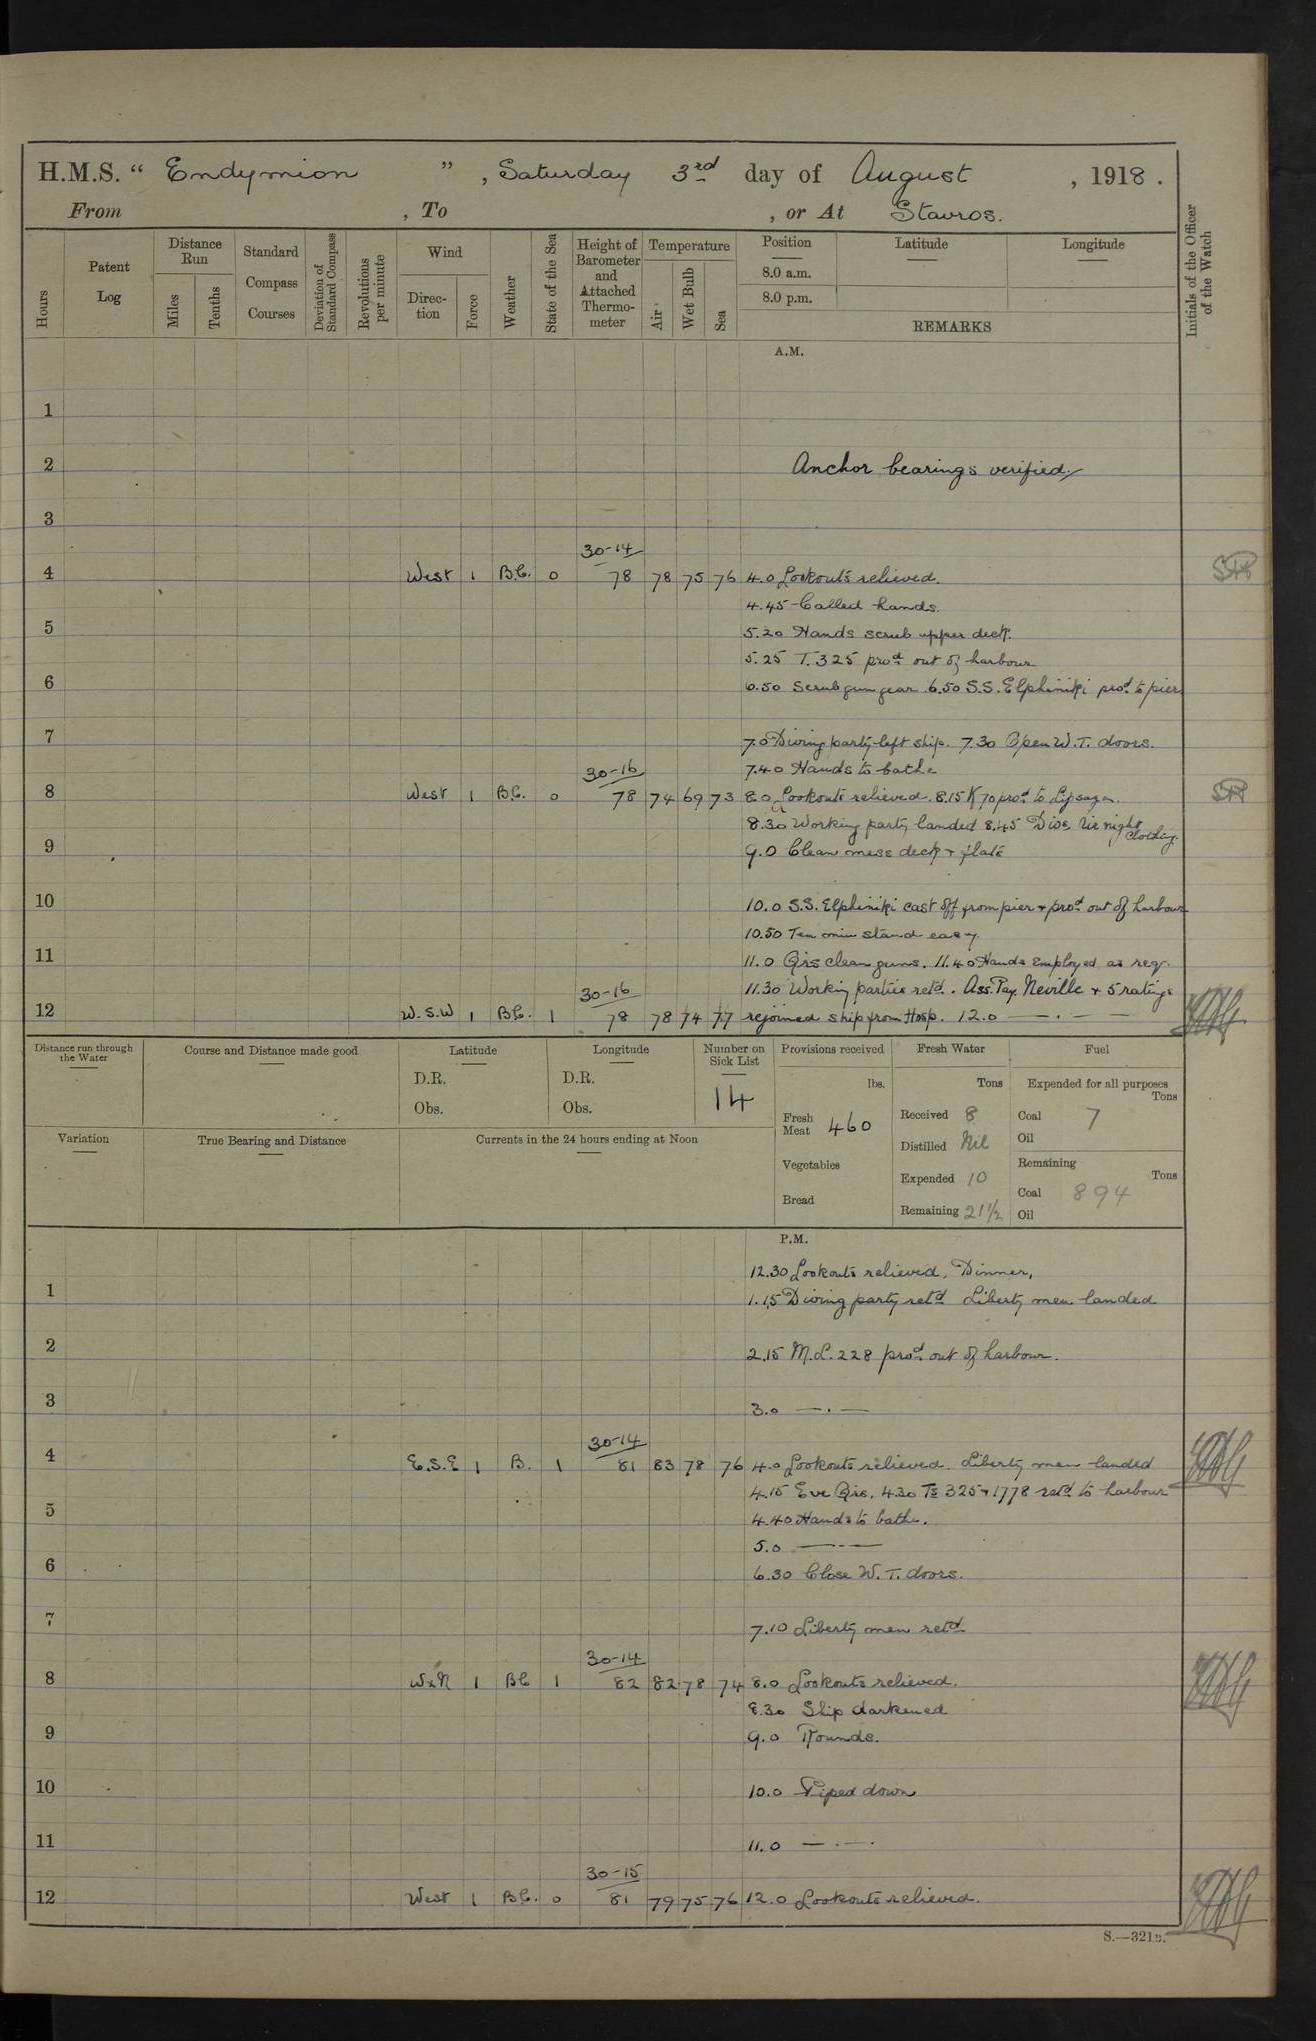 H.M.S. “ Endymion ” , Saturday 3rd day of August , 1918 .
From , To , or At Stavros.
Hours
Patent Log
Distance Run
Miles
Tenths
Standard Compass Courses
Deviation of Standard Compass
Revolutions per minute
Wind
Direc-tion
Force
Weather
State of the Sea
Height of Barometer and Attached Thermo-meter
Temperature
Air
Wet Bulb
Sea
Position
8.0 a.m.
8.0 p.m.
Latitude
Longitude
REMARKS
Initials of the Officer of the Watch
A.M.
1
2 Anchor bearings verified
3
30-14
4 West 1 B.C. 0 78 78 75 76 4.0 Lookouts relieved.
4.45 Called hands.
5
5.20 Hands scrub upper deck.
5.25 T.325 prod out of harbour
6
6.50 Scrub gun gear. 6.50 S.S. Elphiniki prod to pier
7
7.0 Diving party left ship. 7.30 Open W.T. doors.
30-16
7.40 Hands to bathe
8 West 1 B.C. 0 78 74 69 73 8.0 Lookouts relieved. 8.15 K 70 prod to
8.30 Working party landed 8.45 Divs, Air night clothing.
9
9.0 Clean mess deck & flats
10
10.0 S.S. Elphiniki cast off from pier & prod out of harbour
10.50 Ten min stand easy.
11
11.0 Qrs clean guns. 11.40 Hands employed as req.
30-16
11.30 Working parties retd. Ass. Pay. Neville & 5 ratings
12 W.S.W 1 B.C. 1 78 78 74 77 rejoined ship from Hosp. 12.0 — . — —
Distance run through the Water
Course and Distance made good
Latitude
D.R.
Obs.
Longitude
D.R.
Obs.
Number on Sick List
14
Provisions received
lbs.
Fresh Meat 460
Vegetables
Bread
Fresh Water
Tons
Received 8
Distilled Nil
Expended 10
Remaining 21½
Fuel
Expended for all purposes
Tons
Coal 7
Oil
Remaining
Tons
Coal 894
Oil
Variation
True Bearing and Distance
Currents in the 24 hours ending at Noon
P.M.
12.30 Lookouts relieved, Dinner,
1
1.15 Diving party retd Liberty men landed
2
2.15 M.L. 228 prod out of harbour.
3
3.0 — . —
30-14
4 E.S.E 1 B. 1 81 83 78 76 4.0 Lookouts relieved. Liberty men landed
4.15 Eve Qrs. 4.30 Ts 325 & 1778 retd to harbour
5
4.40 Hands to bathe.
5.0 — . —
6
6.30 Close W.T. doors.
7
7.10 Liberty men retd
30-14
8 WxN 1 BC 1 82 82 78 74 8.0 Lookouts relieved.
8.30 Ship darkened
9
9.0 Rounds.
10
10.0 Piped down
11
11.0 — . — .
30-15
12 West 1 B.C. 0 81 79 75 76 12.0 Lookouts relieved.
S.—321B.